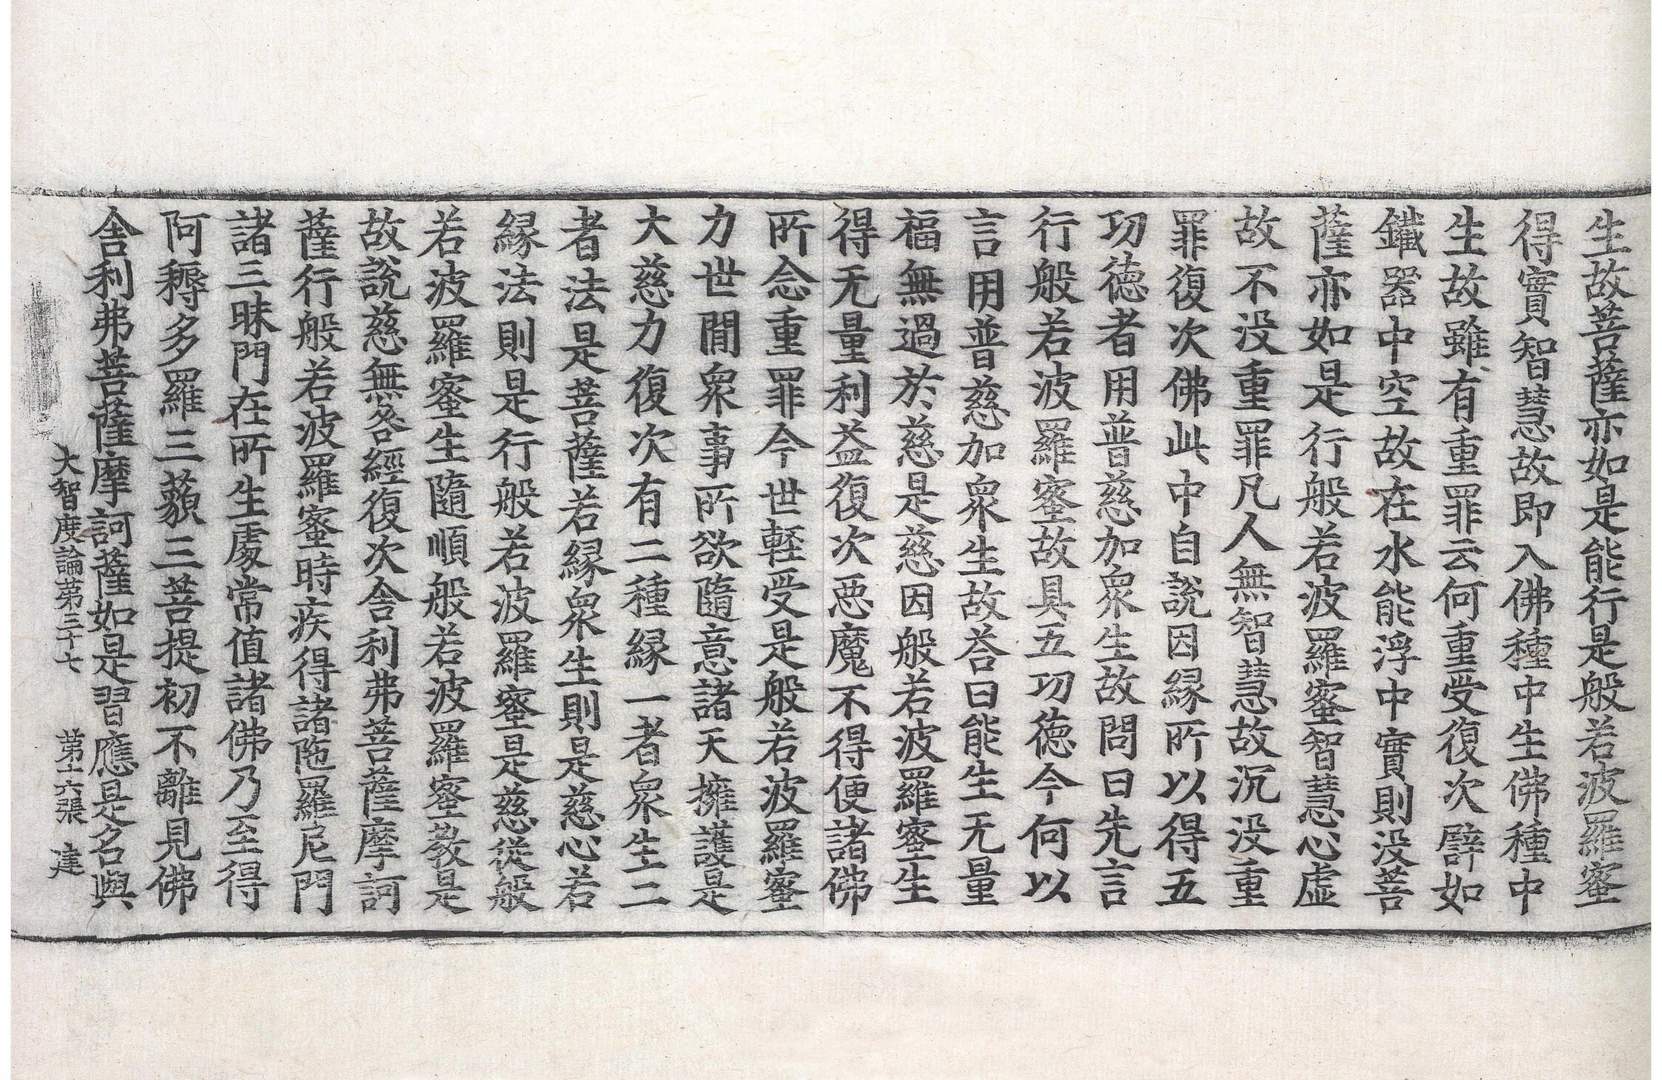 生故菩薩亦如是能行是般若波羅蜜
得實智慧故即入佛種中生佛種中
生故雖有重罪云何重受復次譬如
鐵器中空故在水能浮中實則没菩
薩亦如是行般若波羅蜜智慧心虚
故不没重罪凡人無智慧故沉没重
罪復次佛此中自說因緣所以得五
功德者用普慈加衆生故問曰先言
行般若波羅蜜故具五功德今何以
言用普慈加衆生故荅曰能生无量
福無過於慈是慈因般若波羅蜜生
得无量利益復次惡魔不得便諸佛
所念重罪今世輕受是般若波羅蜜
力世閒衆事所欲隨意諸天擁護是
大慈力復次有二種緣一者衆生二
者法是菩薩若緣衆生則是慈心若
緣法則是行般若波羅蜜是慈從般
若波羅蜜生隨順般若波羅蜜教是
故說慈無咎經復次舍利弗菩薩摩訶
薩行般若波羅蜜時疾得諸陁羅尼門
諸三昧門在所生處常值諸佛乃至得
阿耨多羅三藐三菩提初不離見佛
舍利弗菩薩摩訶薩如是習應是名與
大智度論第三十七 第十六張 建